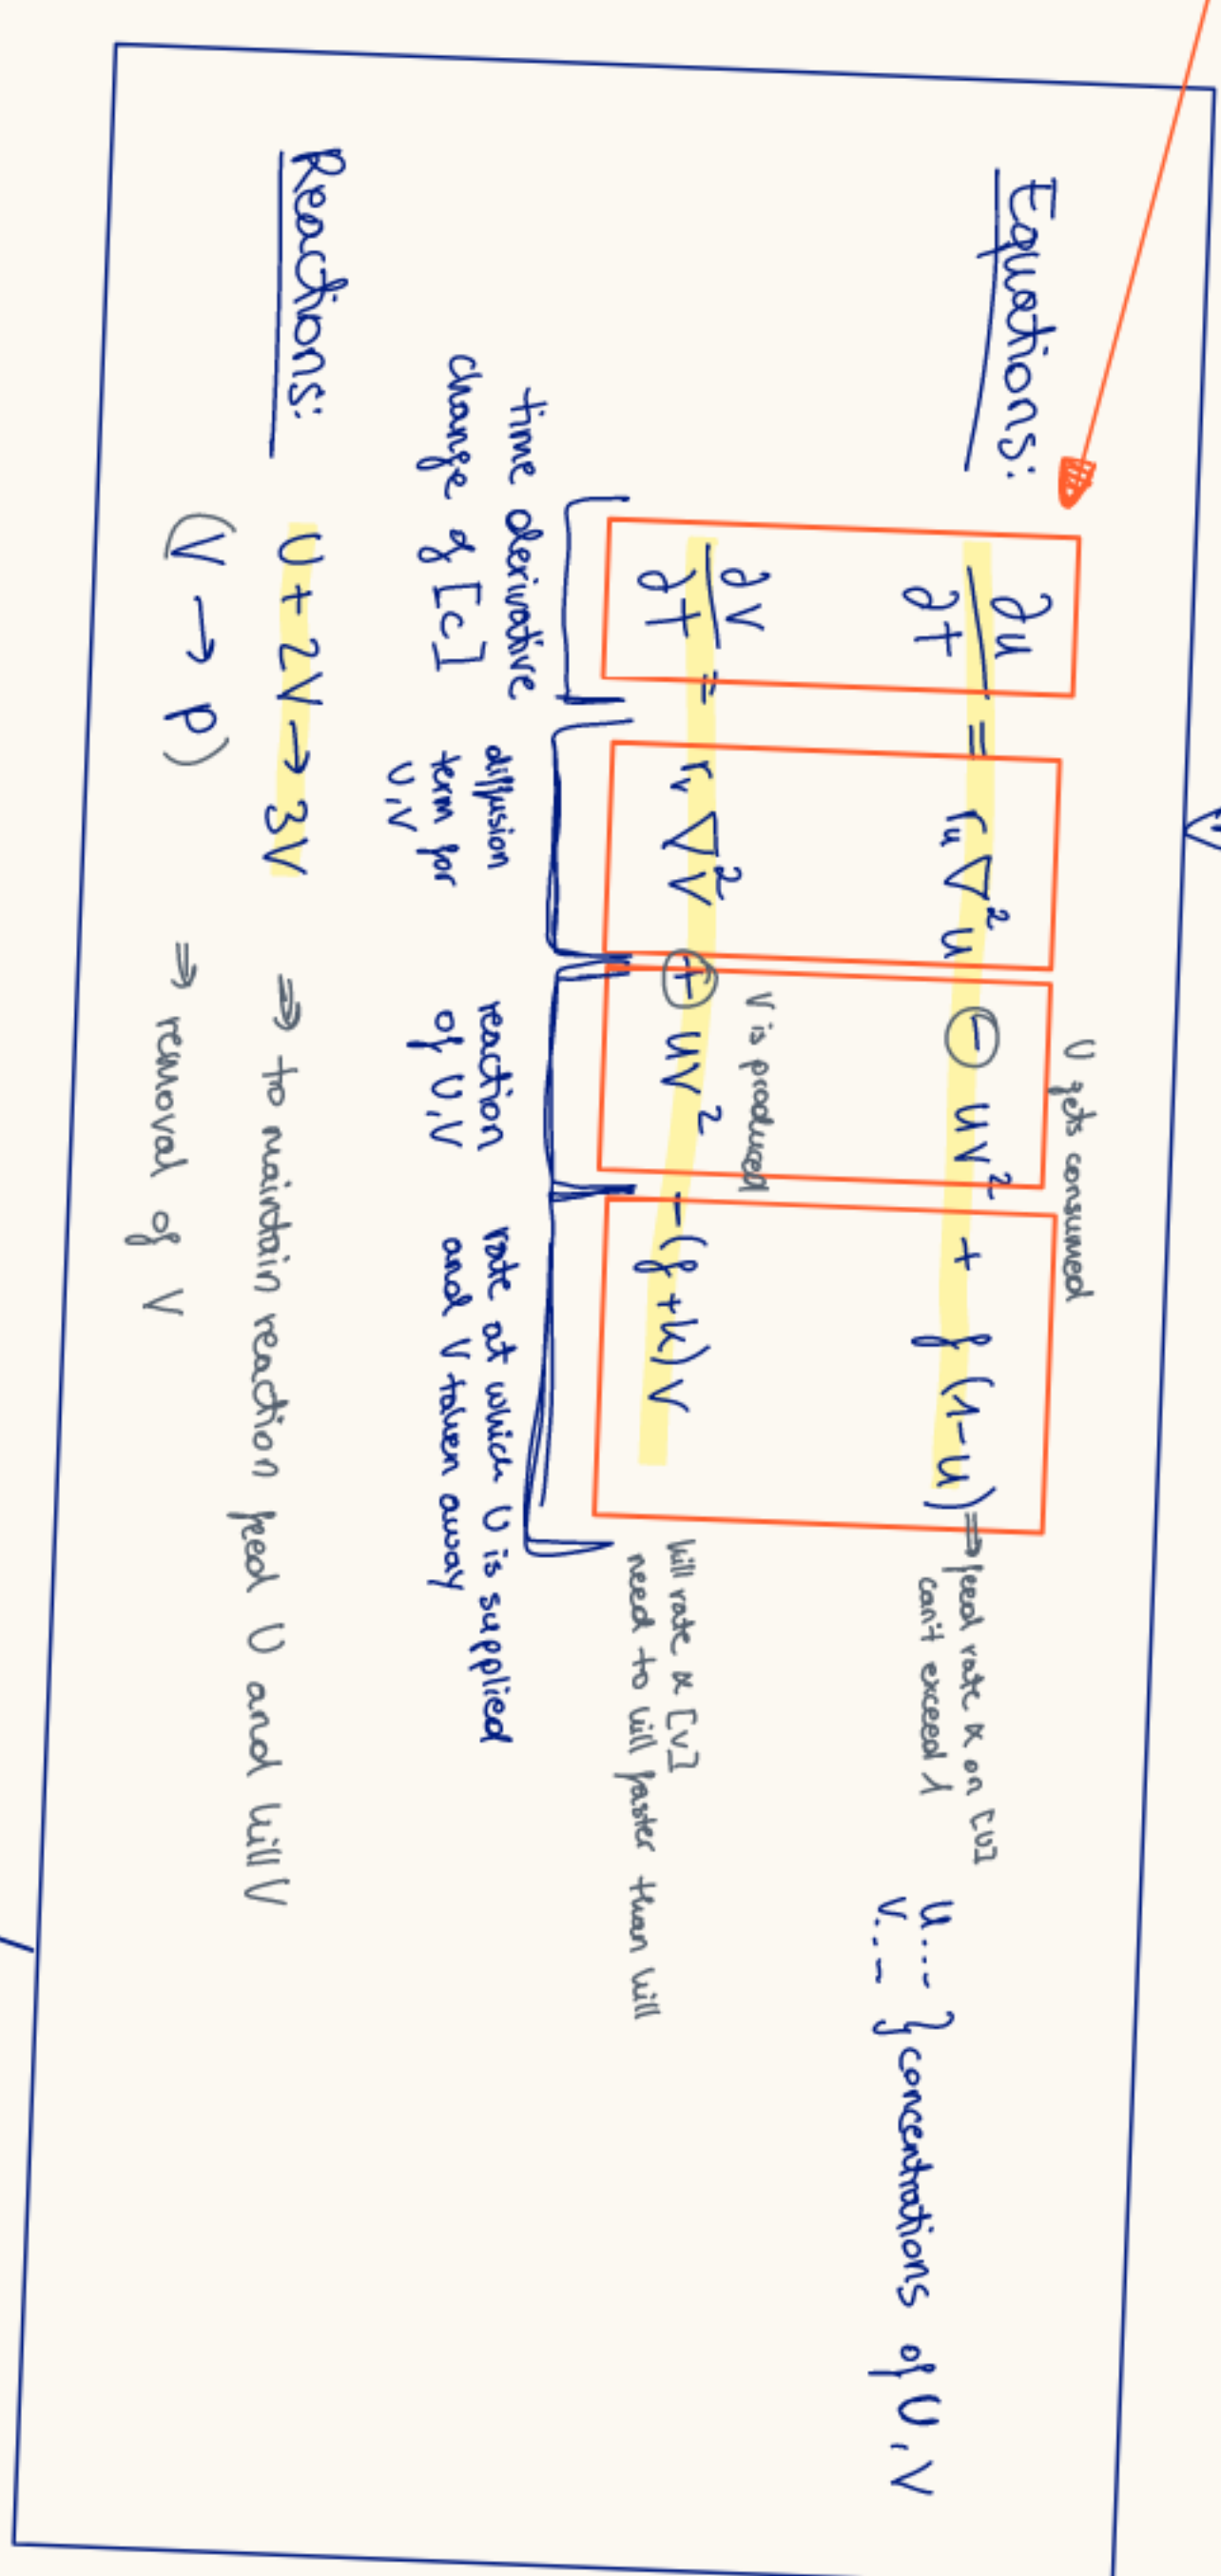 Equations:
U gets consumed
∂u/∂t = rᵤ ∇²u ⊖ uv² + f(1-u) ⇒ feed rate ∝ on [U]
can't exceed 1
u...
v... } concentrations of U, V
V is produced
∂v/∂t = rᵥ ∇²v ⊕ uv² - (f+k)v
kill rate ∝ [V]
need to kill faster than kill
time derivative
change of [c]
diffusion
term for
U, V
reaction
of U, V
rate at which U is supplied
and V taken away
Reactions:
U + 2V → 3V ⇒ to maintain reaction feed U and kill V
(V → p) ⇒ removal of V